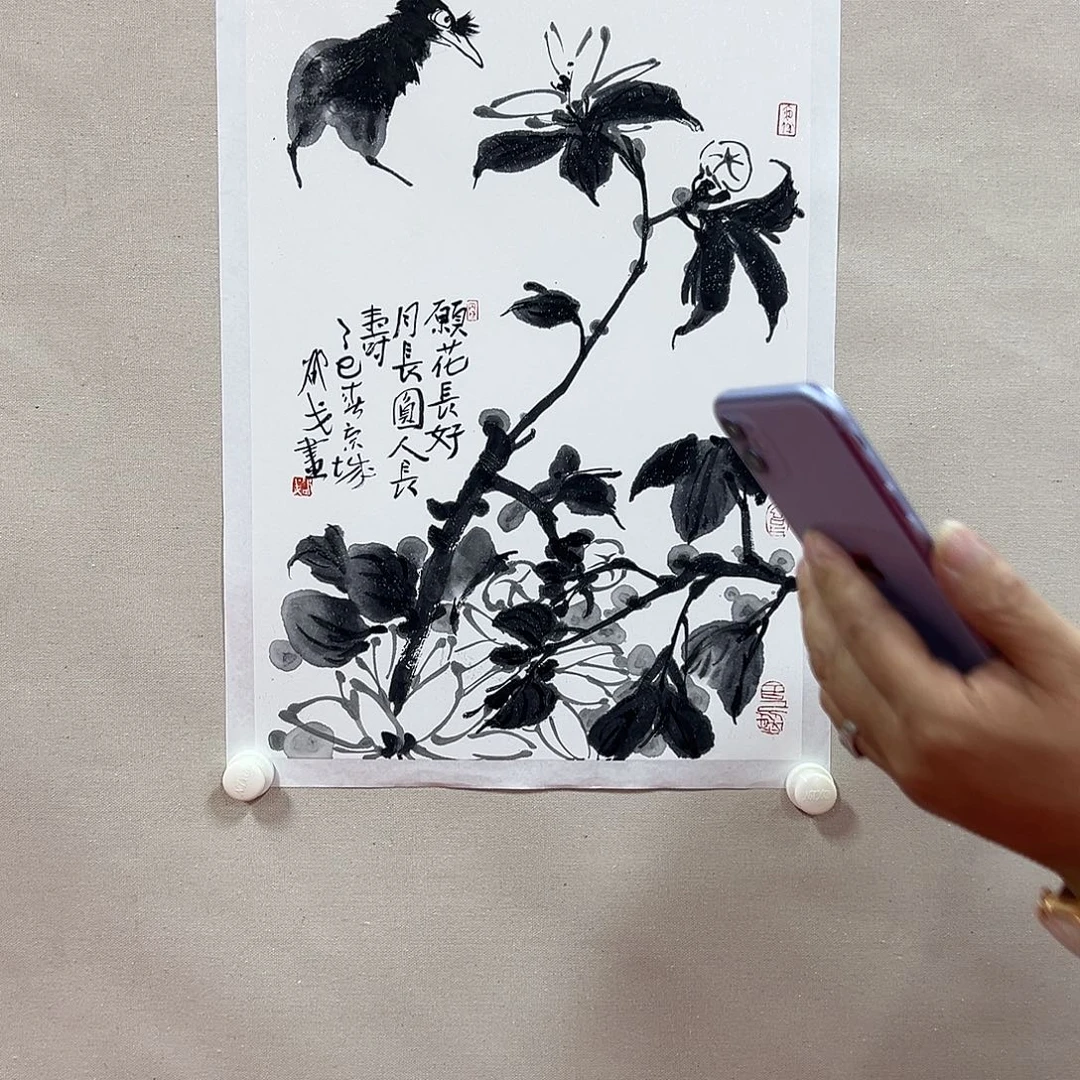 願花長好
月長圓人長
壽
乙巳春京城
戈畫